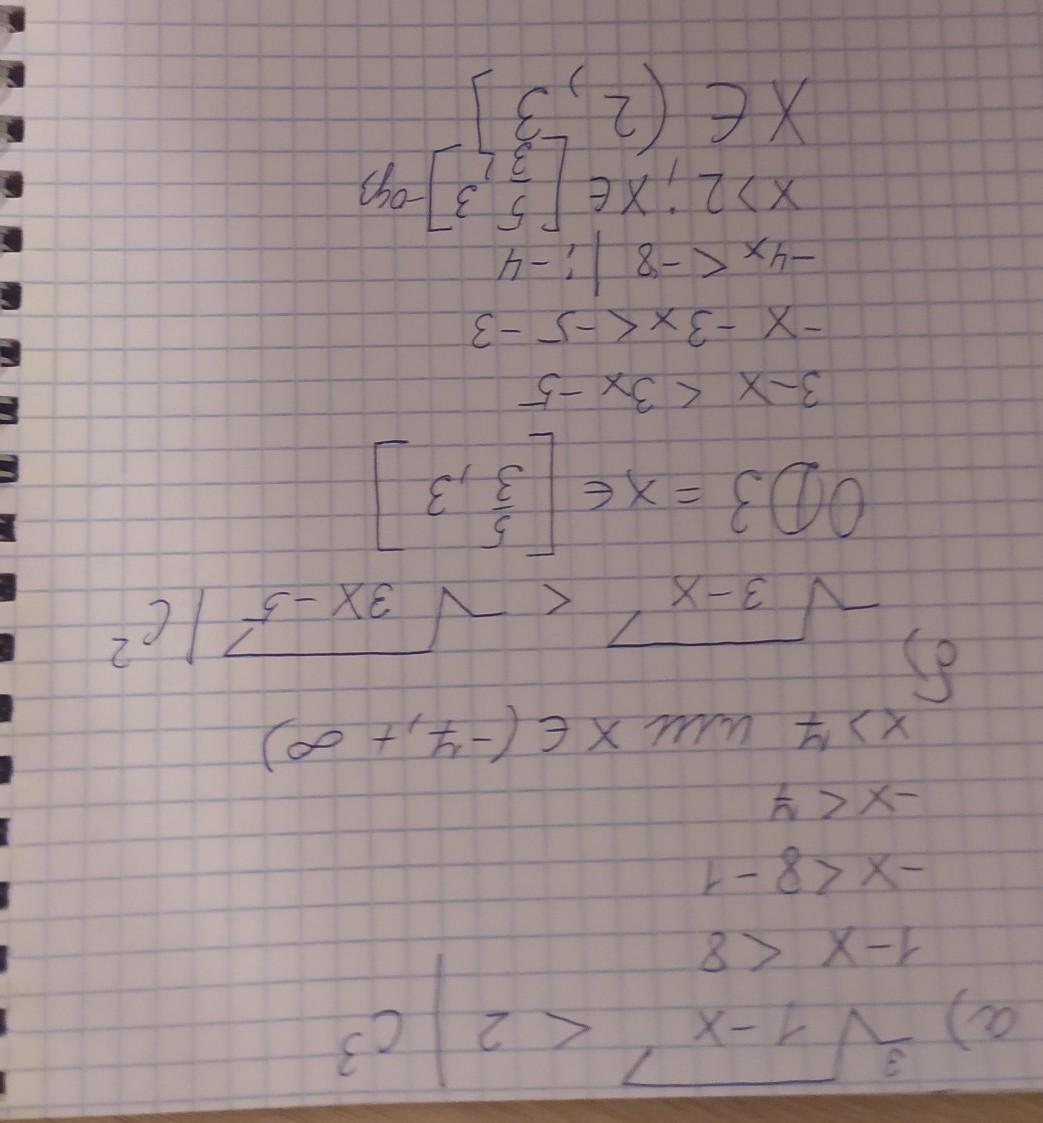 а) ∛1-x < 2 | C³
1-x < 8
-x < 8-1
-x < 7
x > 7 или x ∈ (-7, + ∞)
б)
√3-x < √3x-5 | C²
ОДЗ = x ∈ [5/3, 3]
3-x < 3x-5
-x -3x < -5 -3
-4x < -8 | : -4
x > 2 ; x ∈ [5/3, 3] - одз
x ∈ (2, 3]